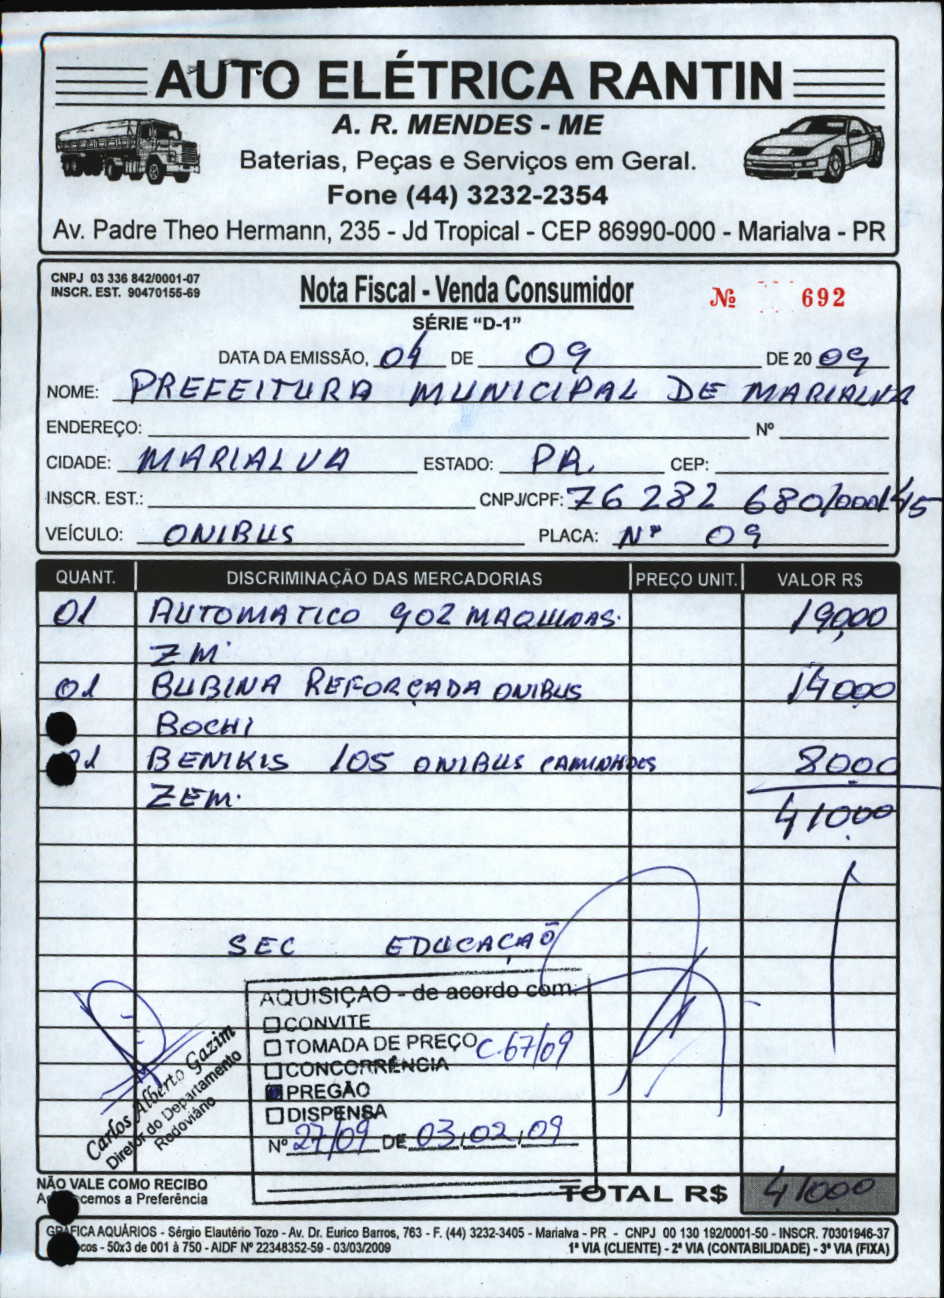 AUTO ELÉTRICA RANTIN
A. R. MENDES - ME
Baterias, Peças e Serviços em Geral.
Fone (44) 3232-2354
Av. Padre Theo Hermann, 235 - Jd Tropical - CEP 86990-000 - Marialva - PR
CNPJ 03 336 842/0001-07
INSCR. EST. 90470155-69
Nota Fiscal - Venda Consumidor
Nº 692
SÉRIE "D-1"
DATA DA EMISSÃO, 04 DE 09 DE 2009
NOME: PREFEITURA MUNICIPAL DE MARIALVA
ENDEREÇO: Nº
CIDADE: MARIALVA ESTADO: PR. CEP:
INSCR. EST.: CNPJ/CPF: 76 282 680/0001/45
VEÍCULO: ONIBUS PLACA: Nº 09
QUANT. DISCRIMINAÇÃO DAS MERCADORIAS PREÇO UNIT. VALOR R$
01 AUTOMATICO 902 MAQUINAS. 190,00
ZM.
01 BUBINA REFORÇADA ONIBUS 14000
BOCHI
01 BENIKIS 105 ONIBUS CAMINHOES 8000
ZEM. 41000
SEC EDUCAÇÃO
AQUISIÇÃO - de acordo com:
CONVITE
TOMADA DE PREÇO C.67/09
CONCORRÊNCIA
PREGÃO
DISPENSA
Nº 27/09 DE 03,02,09
Carlos Alberto Gazim
Diretor do Departamento
Rodoviário
NÃO VALE COMO RECIBO
a Preferência
TOTAL R$ 41000
GRÁFICA AQUÁRIOS - Sérgio Elautério Tozo - Av. Dr. Eurico Barros, 763 - F. (44) 3232-3405 - Marialva - PR - CNPJ 00 130 192/0001-50 - INSCR. 70301946-37
- 50x3 de 001 à 750 - AIDF Nº 22348352-59 - 03/03/2009 1ª VIA (CLIENTE) - 2ª VIA (CONTABILIDADE) - 3ª VIA (FIXA)